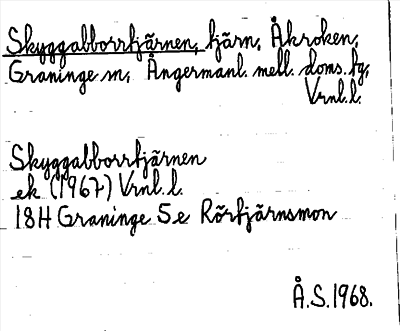 Skyggabborrtjärnen, tjärn, Åkroken,
Graninge sn, Ångermanl. mell. doms. tg,
Vrnl. l.
Skyggabborrtjärnen
ek (1967) Vrnl. l.
18H Graninge 5e Rörtjärnsmon
Å.S. 1968.